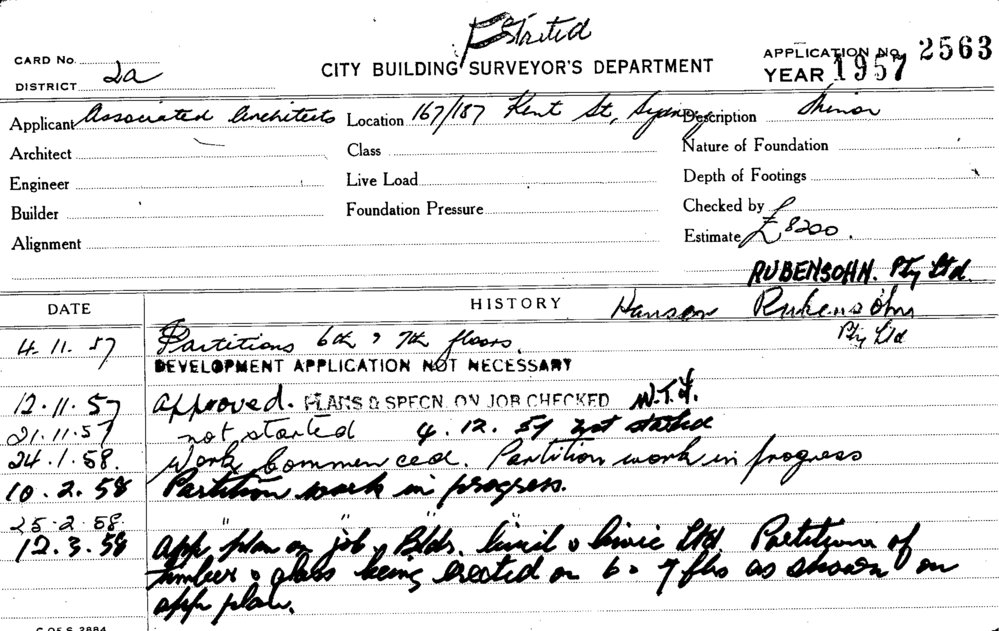 Started
CARD No.
DISTRICT 2a
CITY BUILDING SURVEYOR'S DEPARTMENT
APPLICATION No. 2563
YEAR 1957
Applicant Associated Architects Location 167/187 Kent St, Sydney Description Minor
Architect Class Nature of Foundation
Engineer Live Load Depth of Footings
Builder Foundation Pressure Checked by
Alignment Estimate £8200.
RUBENSOHN. Pty Ltd.
DATE HISTORY Hanson Rubensohn
Pty Ltd
4. 11. 57 Partitions 6th & 7th floors.
DEVELOPMENT APPLICATION NOT NECESSARY
12.11.57 approved. PLANS & SPECN. ON JOB CHECKED W.T.F.
21.11.57 not started 4. 12. 57 not started
24.1.58. Work Commenced. Partition work in progress
10.2.58 Partition work in progress.
25.2.58. " " "
12.3.58 App. plan on job. Bldrs. Civil & Civic Ltd Partitions of
timber & glass being erected on 6 & 7 flrs as shown on
app plan.
C OF S 2884